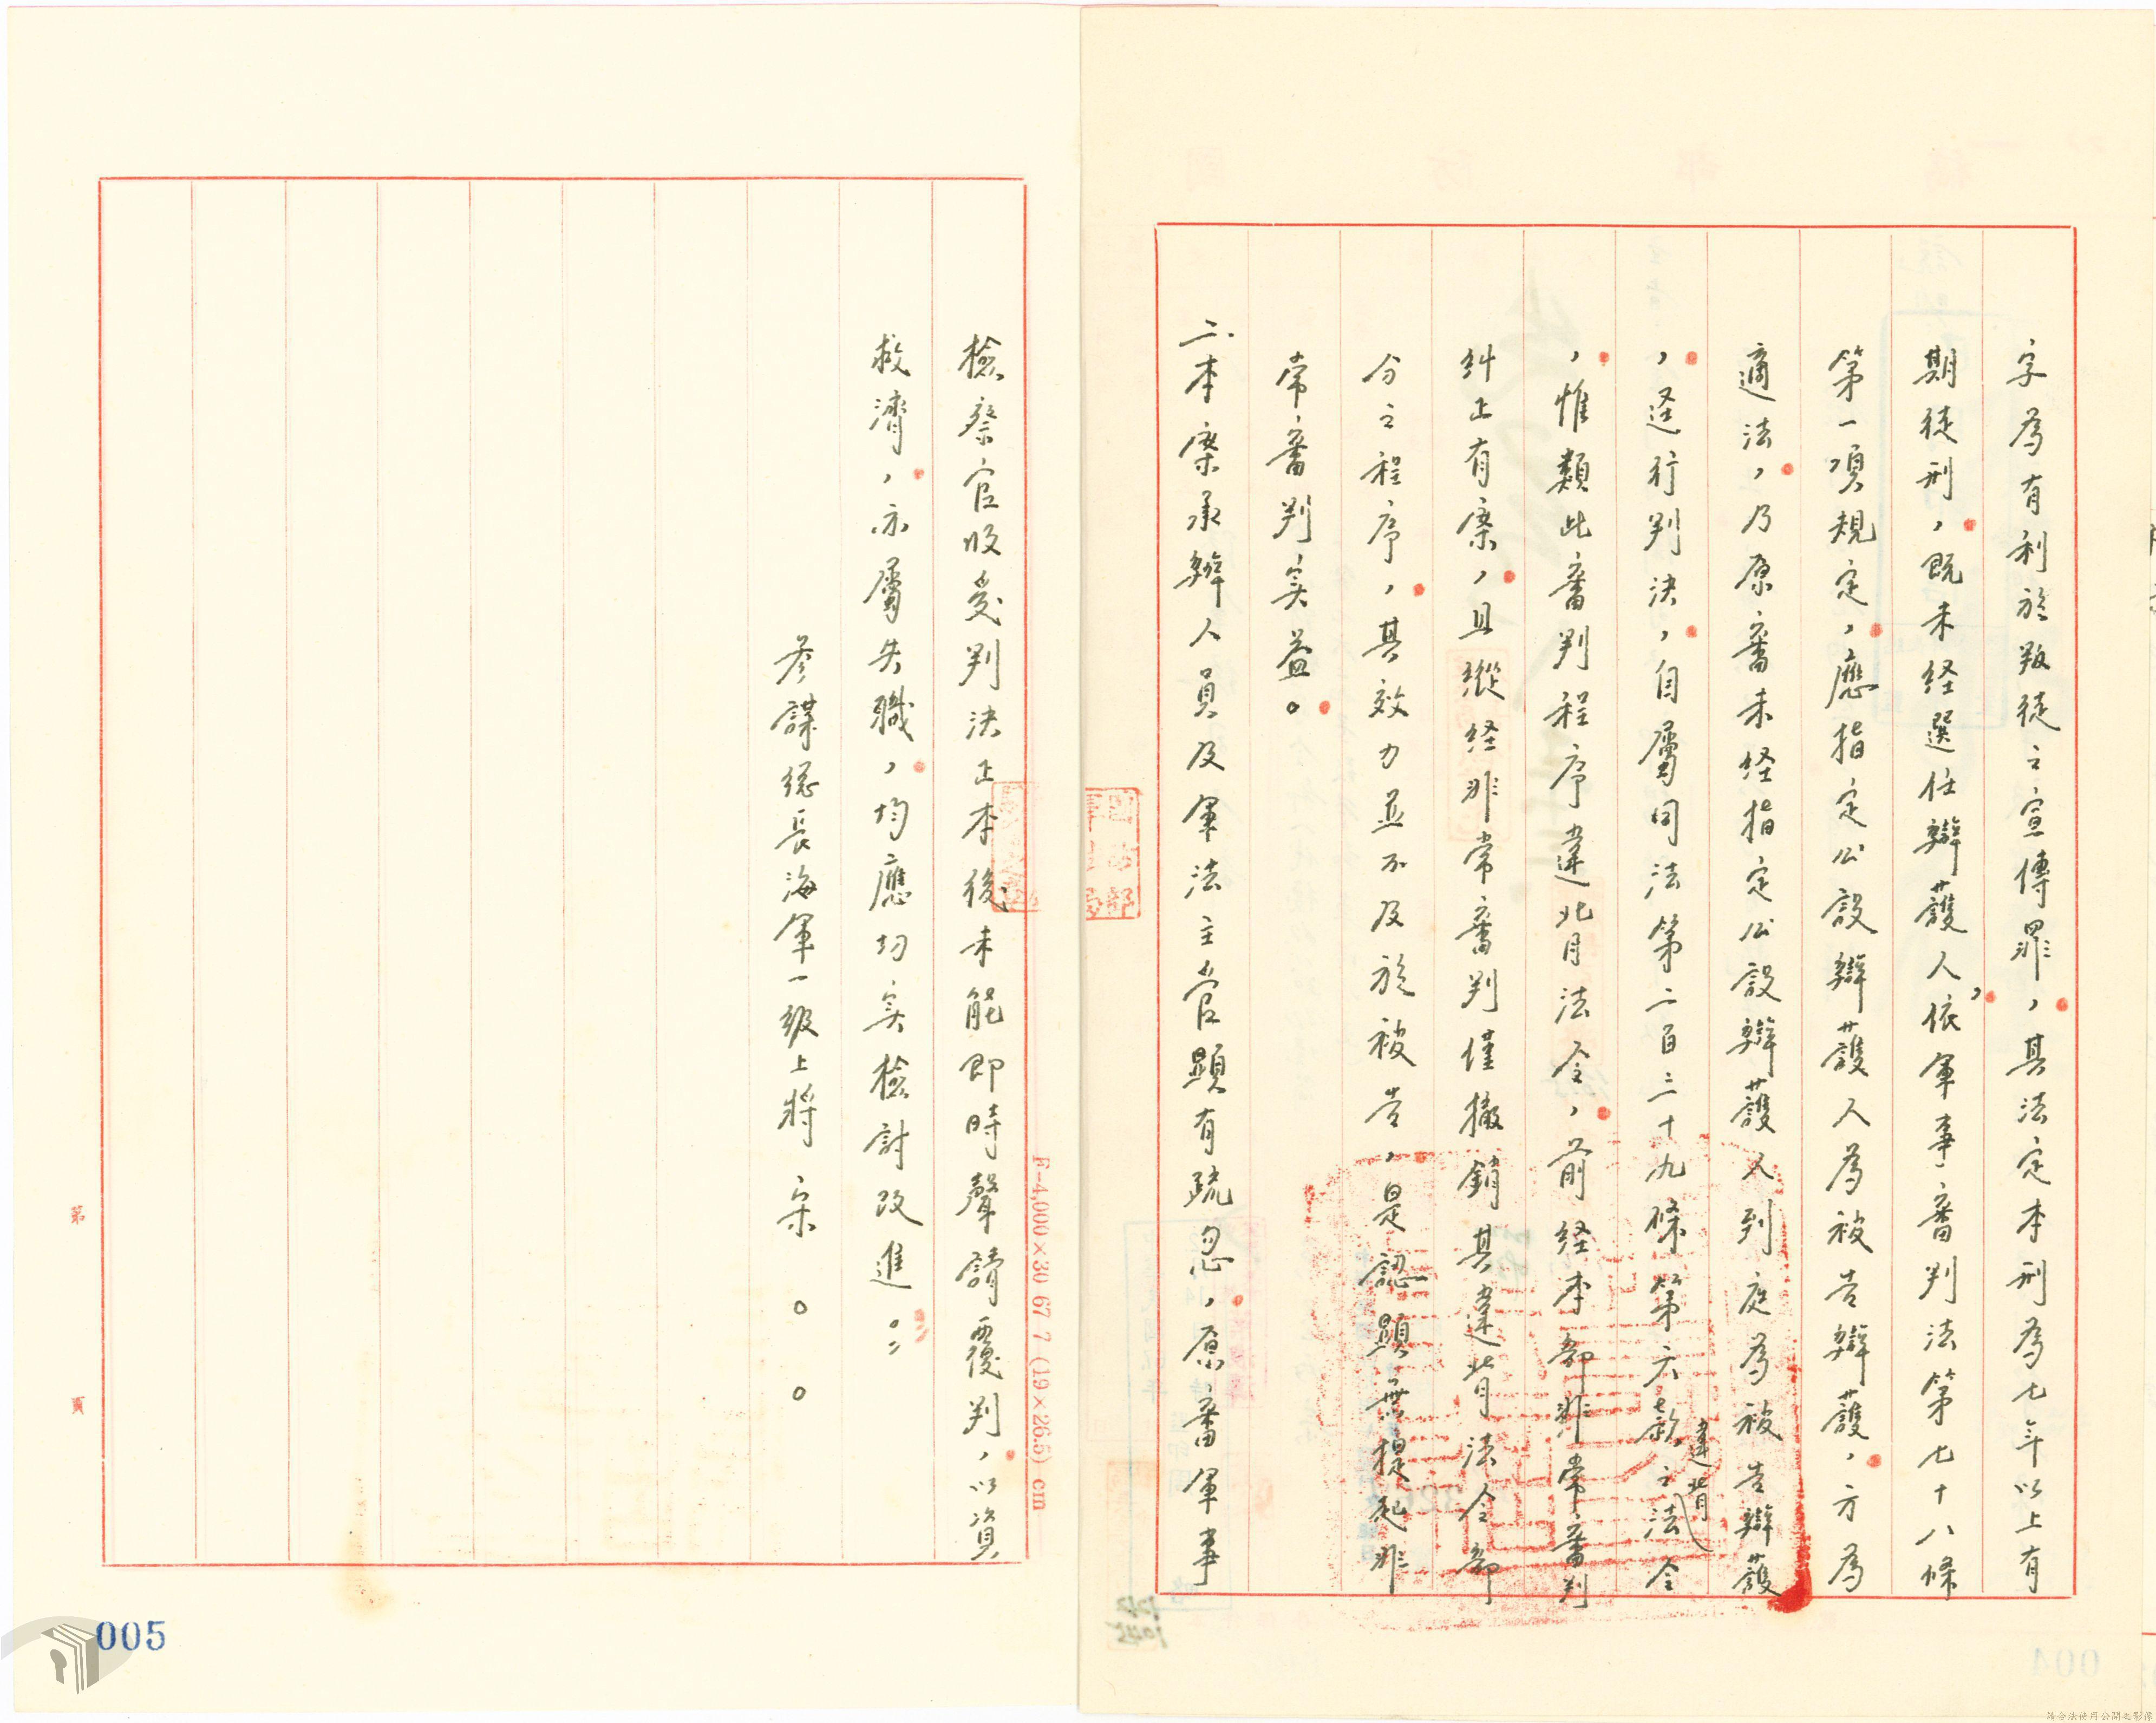 字為有利於叛徒之宣傳罪，其法定本刑為七年以上有
期徒刑，既未経選任辯護人，依軍事審判法第七十八條
第一項規定，應指定公設辯護人為被告辯護，方為
適法，乃原審未経指定公設辯護人到庭為被告辯護
，逕行判決，自屬同法第二百三十九條第六款之違背法令
，惟類此審判程序違背法令，前経本部非常審判
糾正有案，且縱経非常審判僅撤銷其違背法令部
分之程序，其效力並不及於被告，是認顯無提起非
常審判实益。
二.本案承辦人員及軍法主官顯有疏忽，原審軍事
檢察官收受判決正本後未能即時聲請覆判，以資
救濟，亦屬失職，均應切实檢討改進。
參謀總長海軍一級上將 宋 ○ ○
F-4,000×30 67 7 (19×26.5) cm
第 頁
005
請合法使用公開之影像